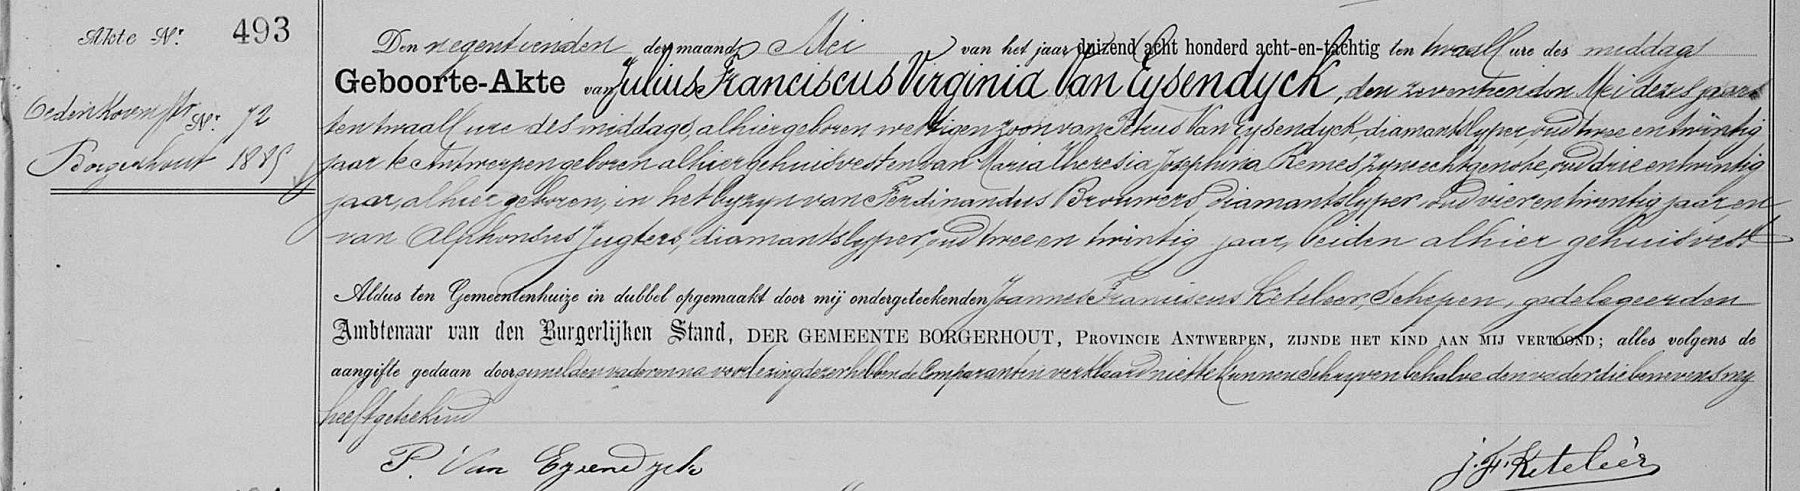 Akte Nr. 493
Den negentienden der maand Mei van het jaar duizend acht honderd acht-en-tachtig ten twaalf ure des middags
Geboorte-Akte van Julius Franciscus Virginia Van Eysendyck, den zeventienden Mei dezes jaars
ten twaalf ure des middags, alhier geboren, wettigen zoon van Petrus Van Eysendyck, diamantslyper, oud twee en twintig
jaar te Antwerpen geboren alhier gehuisvest en van Maria Theresia Josephina Remes, zyne echtgenote, oud drie en twintig
jaar, alhier geboren, in het byzyn van Ferdinandus Brouwers, diamantslyper, oud vier en twintig jaar en
van Alphonsus Jugters, diamantslyper, oud twee en twintig jaar, beiden alhier gehuisvest
Aldus ten Gemeentenhuize in dubbel opgemaakt door mij ondergeteekenden Joannes Franciscus Keteleer, Schepen, gedelegeerden
Ambtenaar van den Burgerlijken Stand, DER GEMEENTE BORGERHOUT, PROVINCIE ANTWERPEN, ZIJNDE HET KIND AAN MIJ VERTOOND; alles volgens de
aangifte gedaan door gemelden vader en na voorlezing dezer hebben de Comparanten verklaard niet te kunnen schryven behalve den vader die benevens my
heeft geteekend
P. Van Eysendyck
J. F. Keteleer
Nr. 72
Borgerhout 1885